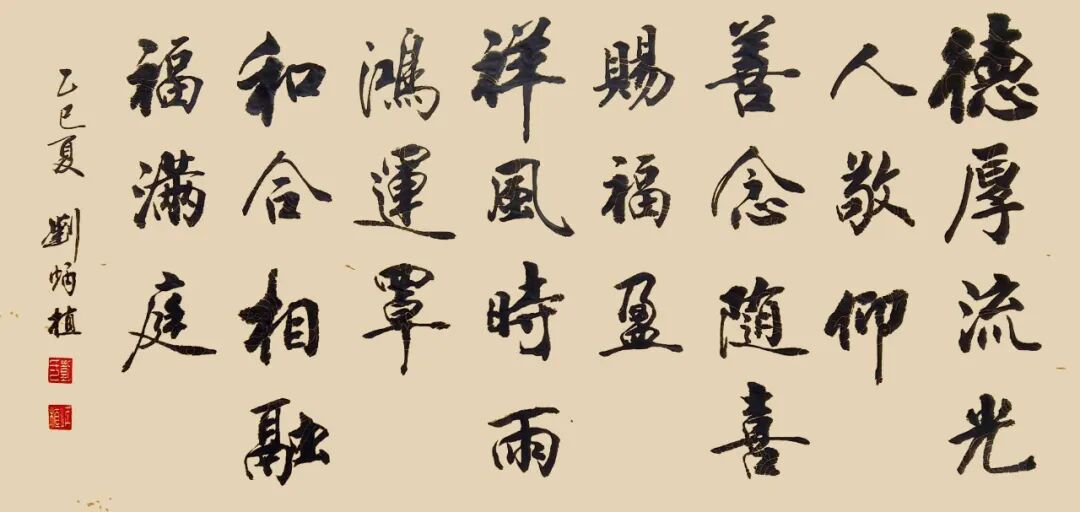 德厚流光
人敬仰
善念随喜
賜福盈
祥風時雨
鴻運罩
和合相融
福滿庭
乙巳夏 劉炳植